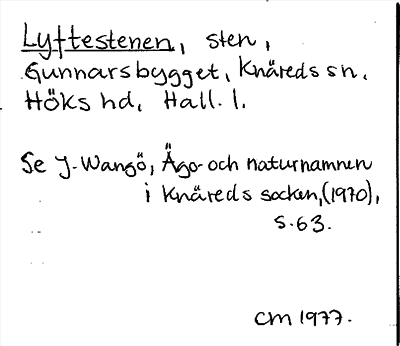 Lyftestenen, sten,
Gunnarsbygget, Knäreds sn,
Höks hd, Hall. l.
Se J. Wangö, Ägo- och naturnamnen
i Knäreds socken, (1970),
s. 63.
CM 1977.